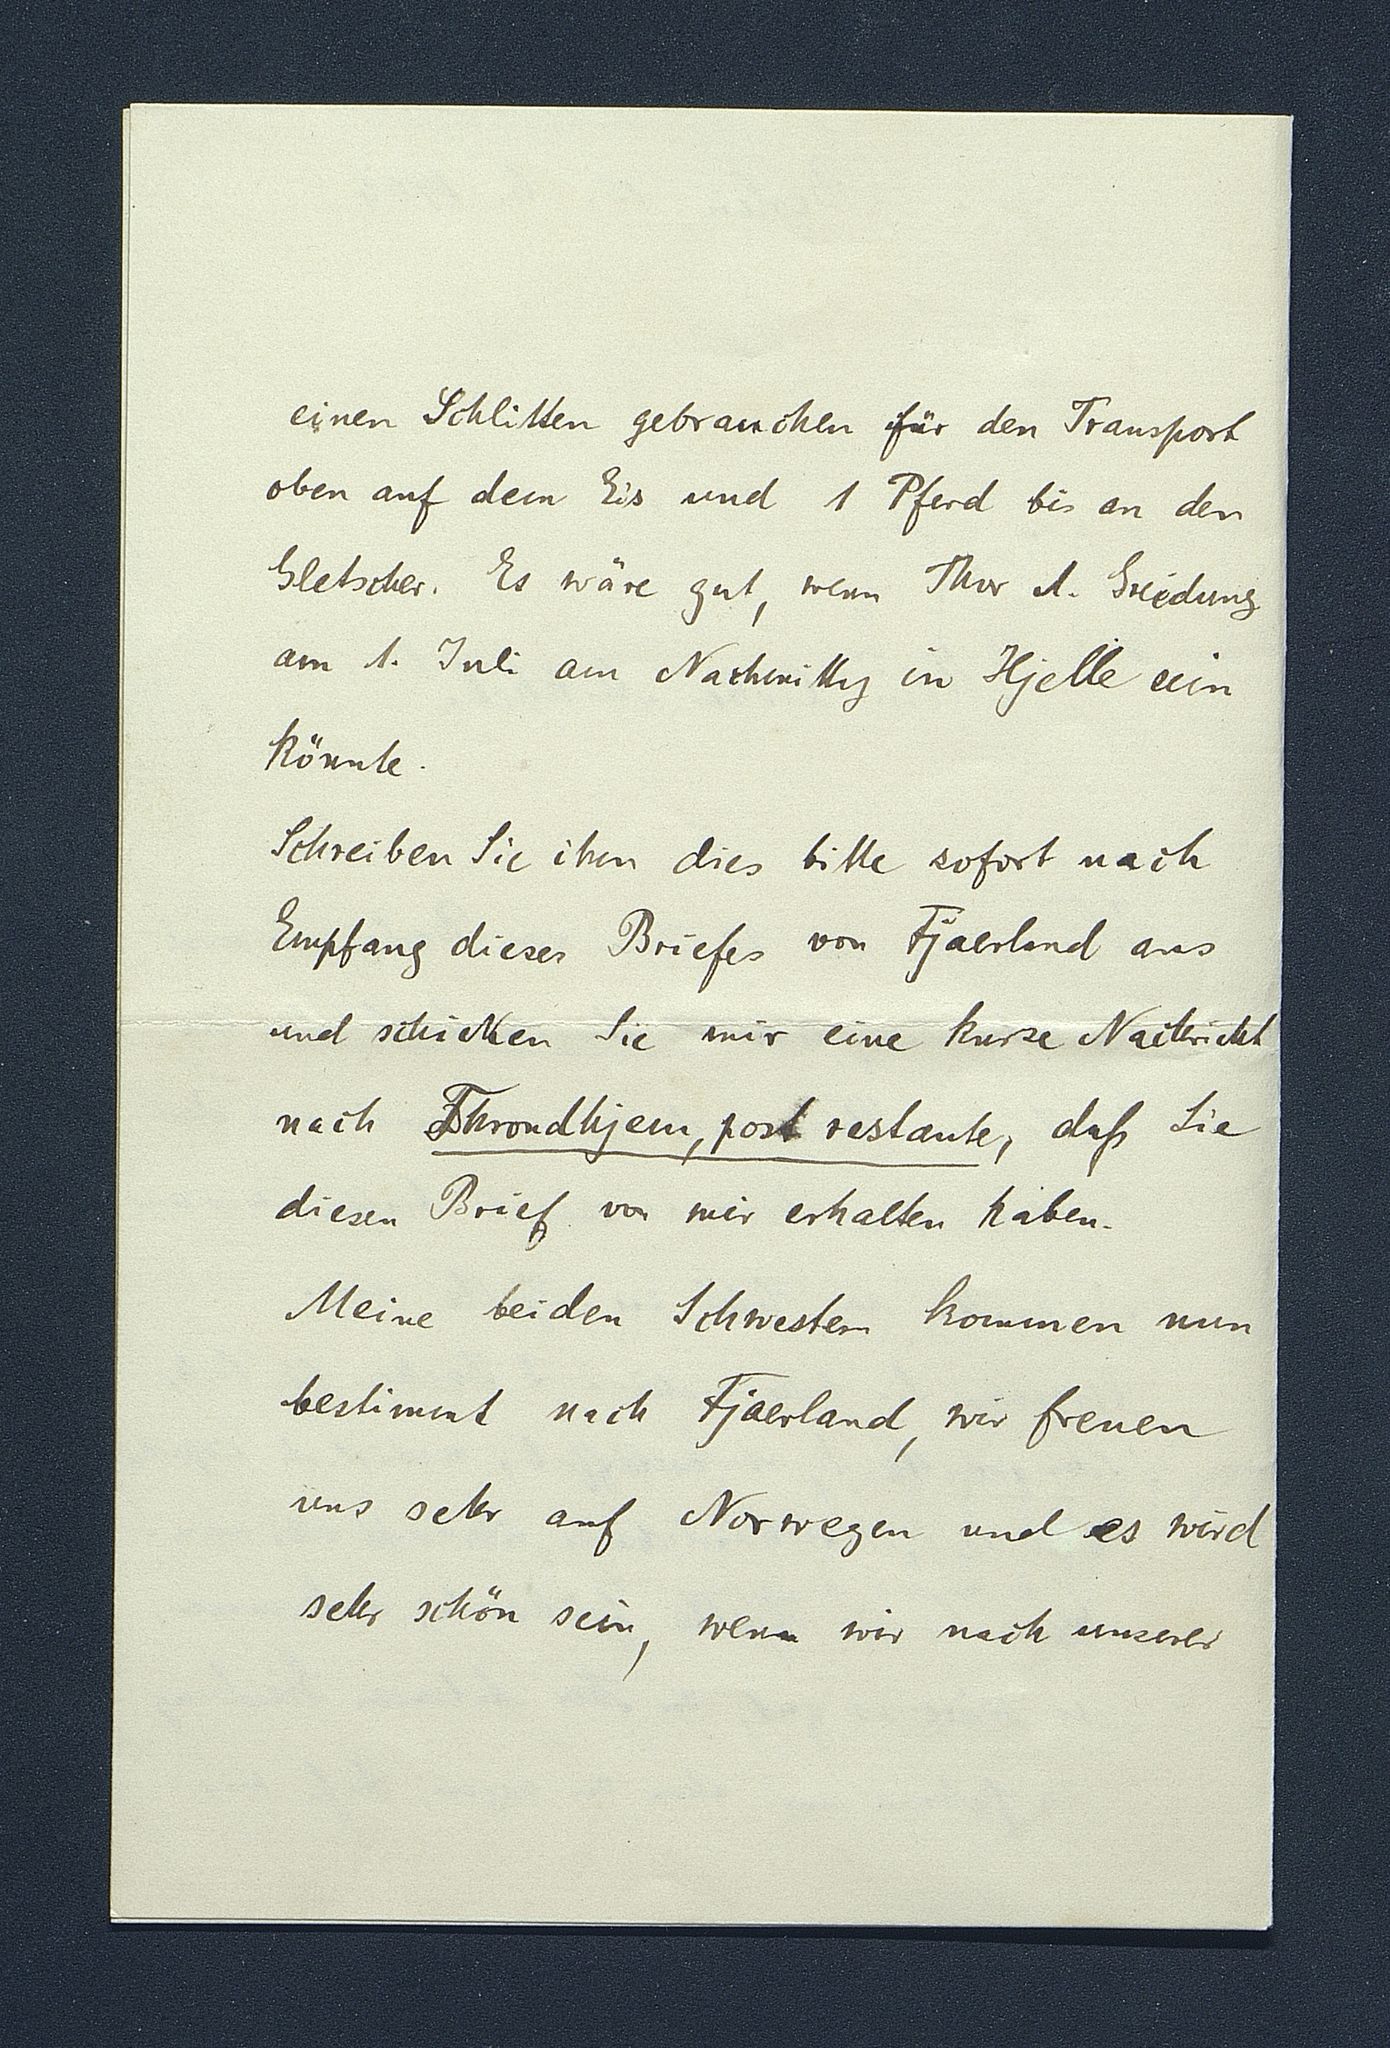 einen Schlitten gebrauchen für den Transport
oben auf dem Eis und 1 Pferd bis an den
Gletscher. Es wäre gut, wenn Thor A. Greidung
am 1. Juli am Nachmittg in Hjelle sein
könnte.
Schreiben Sie ihm dies bitte sofort nach
Empfang dieses Briefes von Fjaerland aus
und schicken Sie mir eine kurze Nachricht
nach Throndhjem, post restante, daß Sie
diesen Brief von mir erhalten haben.
Meine beiden Schwestern kommen nun
bestimmt nach Fjaerland, wir freuen
uns sehr auf Norwegen und es wird
sehr schön sein, wenn wir nach unserer